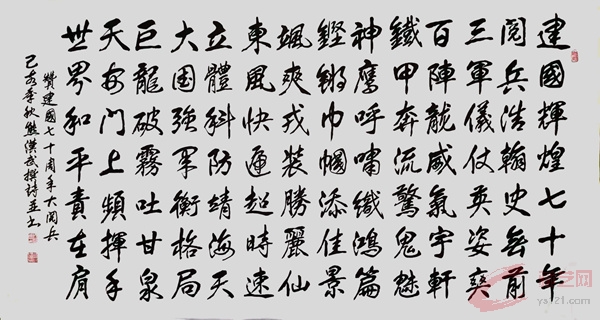 建國輝煌七十年
閱兵浩翰史無前
三軍儀仗英姿爽
百陣龍威氣宇軒
鐵甲奔流驚鬼魅
神鷹呼嘯織鴻篇
鏗鏘巾幗添佳景
颯爽戎裝勝麗仙
東風快遞超時速
立體科防靖海天
大国強军衡格局
巨龍破霧吐甘泉
天安门上頻揮手
世界和平責在肩
贊建國七十周年大閱兵
己亥季秋熊漢武撰詩並書
ys121.com